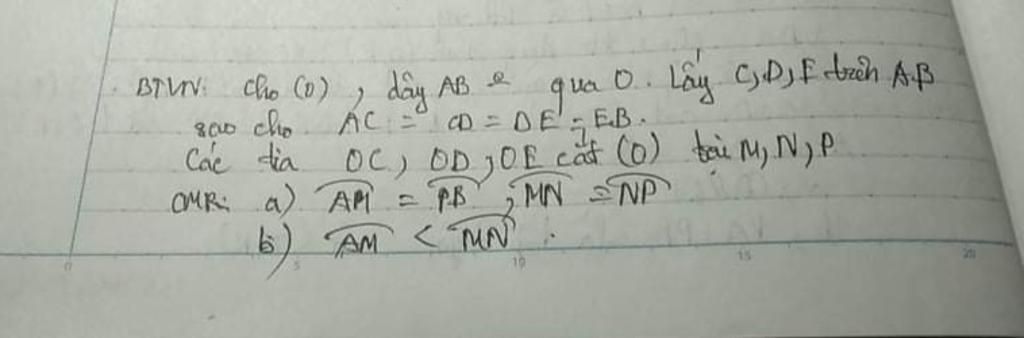 BTVN: Cho (O), dây AB k qua O. Lấy C, D, E trên AB
sao cho AC = CD = DE = EB.
Các tia OC, OD, OE cắt (O) tại M, N, P
CMR: a) AM = PB, MN = NP
b) AM < MN.
0 5 10 15 20